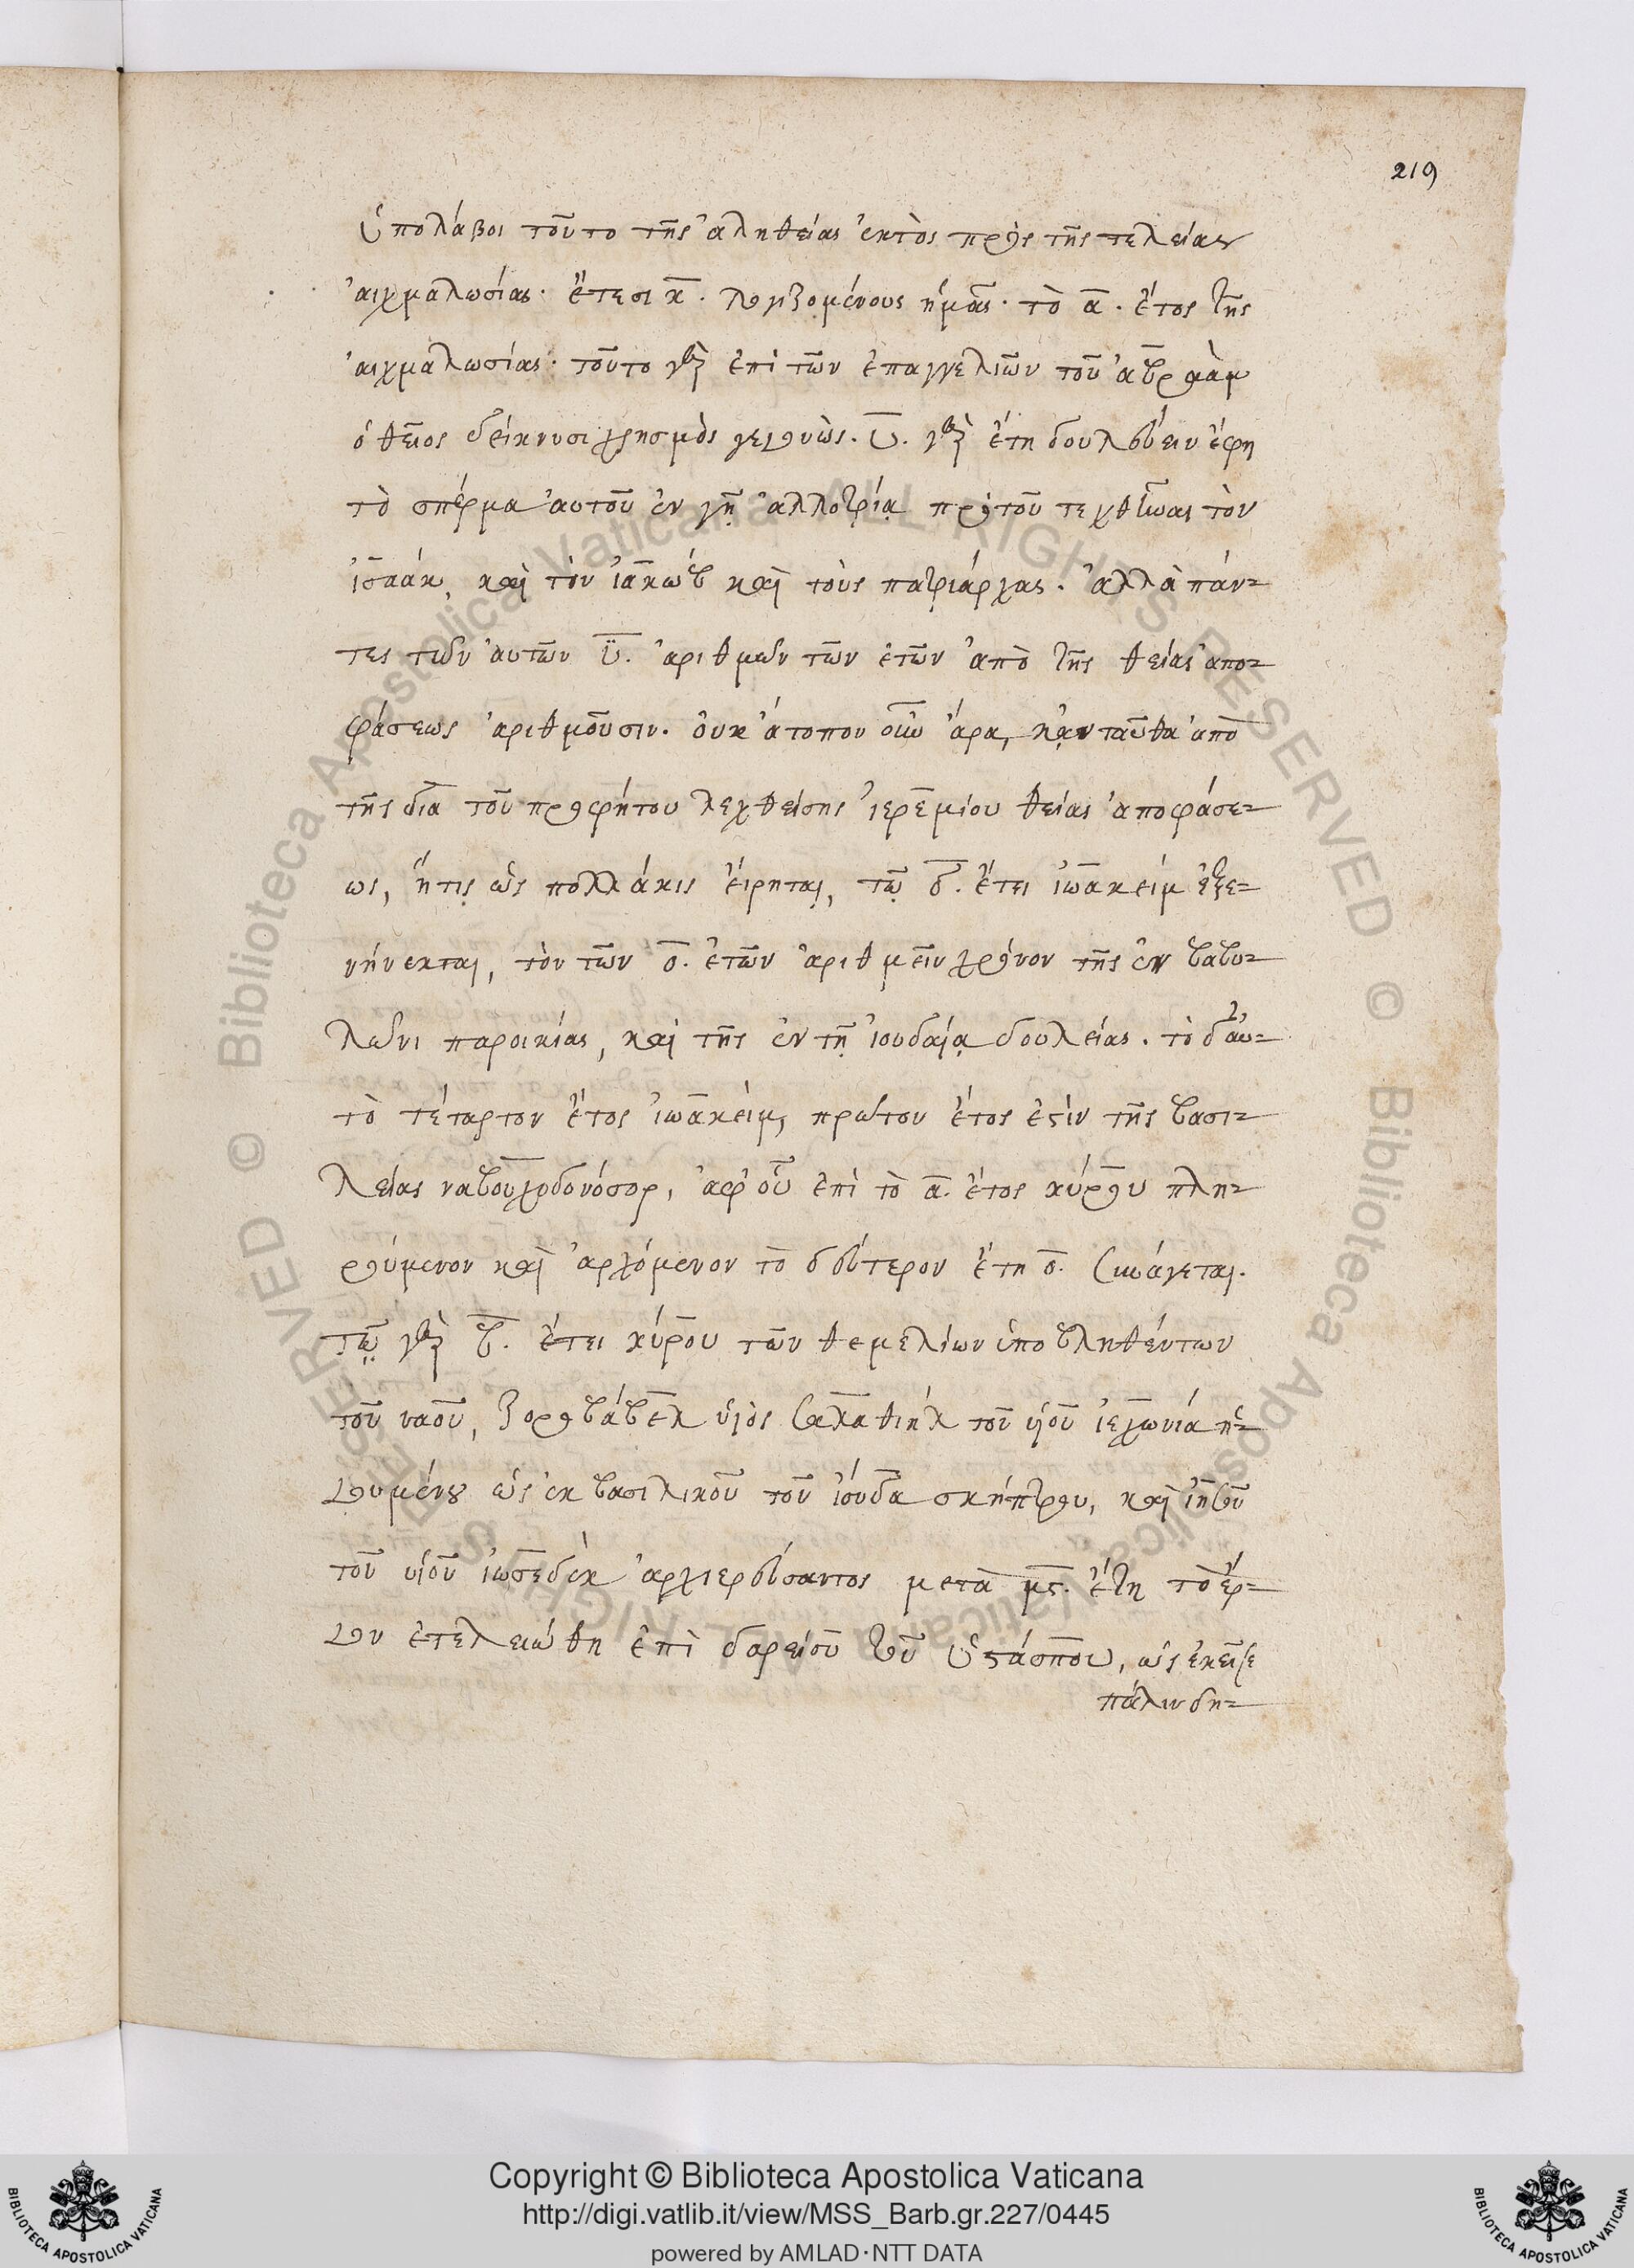 219
ὑπολάβοι τοῦτο τῆς ἀληθείας ἐκτὸς πρὸς τῆς τελείας
αἰχμαλωσίας· ἔτεσι κ̅. λογιζομένους ἡμᾶς· τὸ α̅. ἔτος τῆς
αἰχμαλωσίας· τοῦτο γὰρ ἐπὶ τῶν ἐπαγγελιῶν τοῦ ἀβραὰμ
ὁ θεῖος δείκνυσι χρησμὸς γεγονὼς. υ̅. γὰρ ἔτη δουλεύειν ἔφη
τὸ σπέρμα αὐτοῦ ἐν γῇ ἀλλοτρίᾳ πρὸ τοῦ τεχθῆναι τὸν
ἰσαάκ, καὶ τὸν ἰακὼβ καὶ τοὺς πατριάρχας. ἀλλὰ πάν-
τες τὸν αὐτῶν υ̅. ἀριθμὸν τῶν ἐτῶν ἀπὸ τῆς θείας ἀπο-
φάσεως ἀριθμοῦσιν. οὐκ ἄτοπον οὖν ἄρα, κἀνταῦθα ἀπὸ
τῆς διὰ τοῦ προφήτου λεχθείσης ἱερεμίου θείας ἀποφάσε-
ως, ἥτις ὡς πολλάκις εἴρηται, τῷ δ̅. ἔτει ἰωακεὶμ ἐξε-
νήνεκται, τὸν τῶν ο̅. ἐτῶν ἀριθμεῖν χρόνον τῆς ἐν βαβυ-
λῶνι παροικίας, καὶ τῆς ἐν τῇ ἰουδαίᾳ δουλείας. τὸ δ' αὐ-
τὸ τέταρτον ἔτος ἰωακείμ, πρῶτον ἔτος ἐστὶν τῆς βασι-
λείας ναβουχοδονόσορ, ἀφ' οὗ ἐπὶ τὸ α̅. ἔτος κύρου πλη-
ρούμενον καὶ ἀρχόμενον τὸ δεύτερον ἔτη ο̅. συνάγεται.
τῷ γὰρ β̅. ἔτει κύρου τῶν θεμελίων ὑποβληθέντων
τοῦ ναοῦ, ζοροβάβελ υἱὸς σαλαθιὴλ τοῦ υἱοῦ ἰεχωνία ἡ-
γουμένου ὡς ἐκ βασιλικοῦ τοῦ ἰούδα σκήπτρου, καὶ ἰησοῦ
τοῦ υἱοῦ ἰωσεδὲκ ἀρχιερεύσαντος μετὰ μ̅ϛ̅. ἔτη τὸ ἔρ-
γον ἐτελειώθη ἐπὶ δαρείου τοῦ ὑστάσπου, ὡς ἐκεῖσε
πάλιν δη-
Copyright © Biblioteca Apostolica Vaticana
http://digi.vatlib.it/view/MSS_Barb.gr.227/0445
powered by AMLAD·NTT DATA